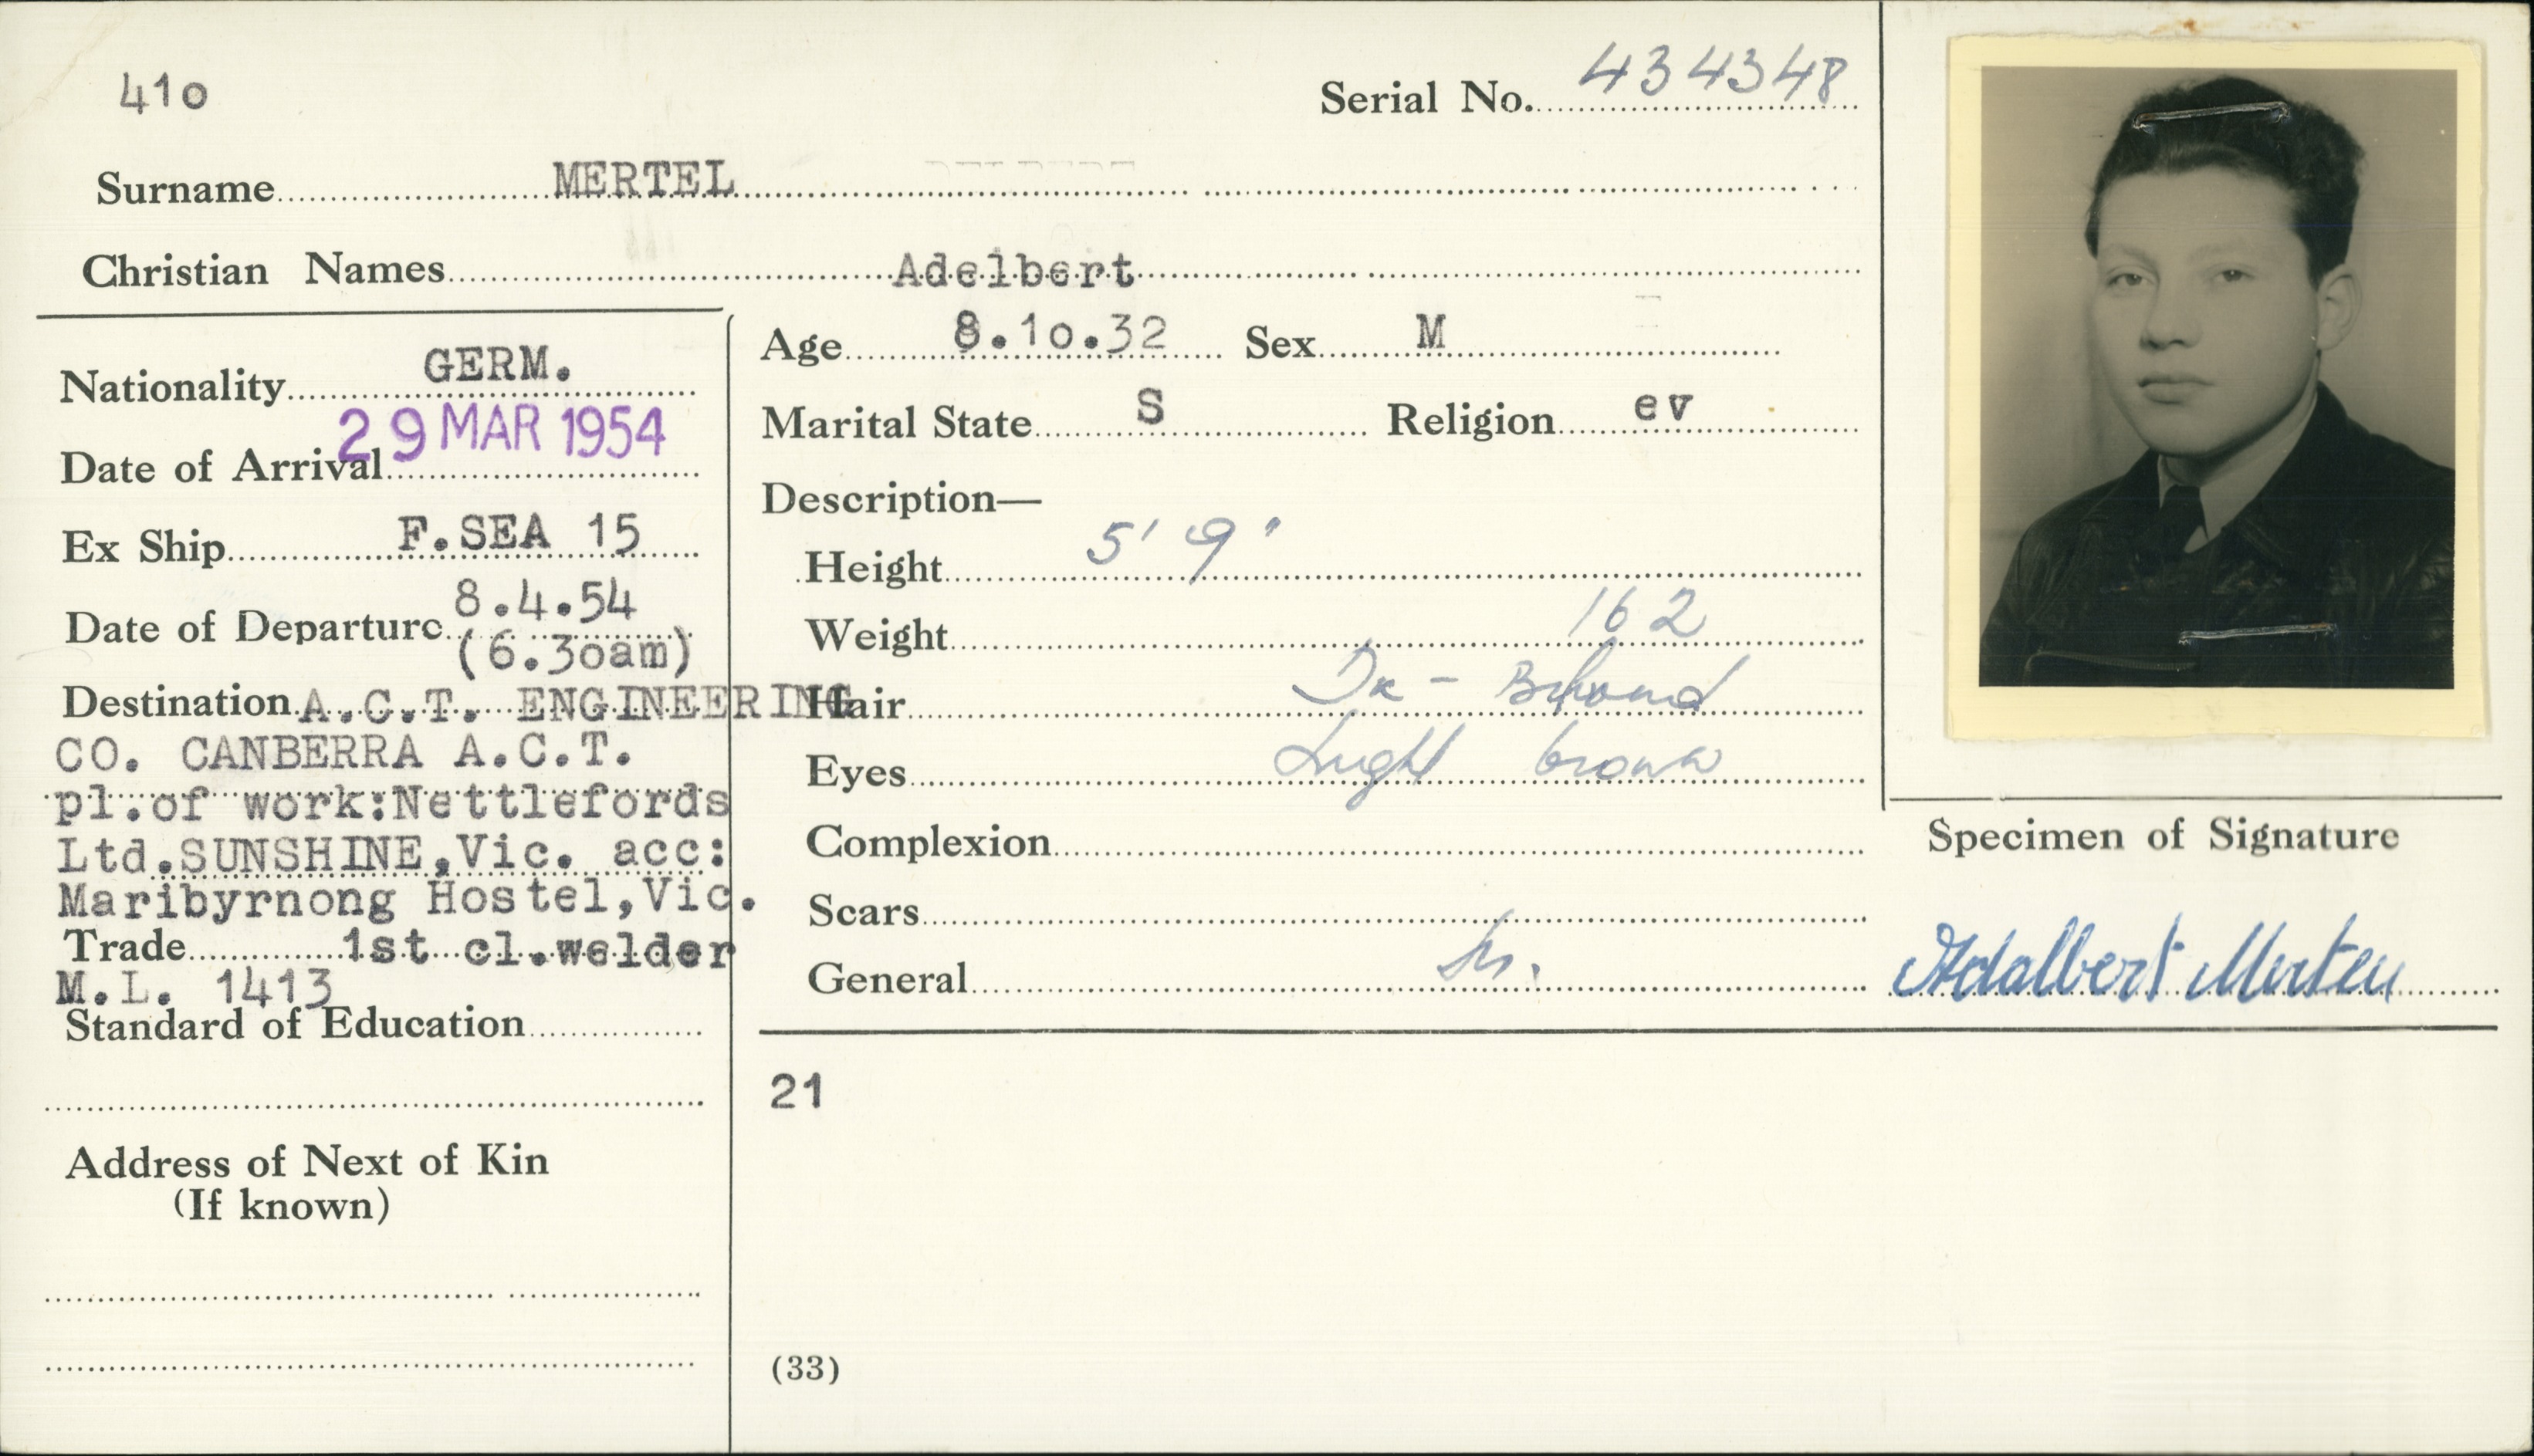 41o
Serial No. 434348
Surname MERTEL
Christian Names Adelbert
Nationality GERM.
Date of Arrival 29 MAR 1954
Ex Ship F.SEA 15
Date of Departure 8.4.54
(6.3oam)
Destination A.C.T. ENGINEERING
CO. CANBERRA A.C.T.
pl.of work:Nettlefords
Ltd.SUNSHINE,Vic. acc:
Maribyrnong Hostel,Vic.
Trade 1st cl.welder
M.L. 1413
Standard of Education
Address of Next of Kin
(If known)
Age 8.1o.32 Sex M
Marital State S Religion ev
Description—
Height 5' 9"
Weight 162
Hair Dk -
Eyes Light brown
Complexion
Scars
General
21
(33)
Specimen of Signature
Adalbert